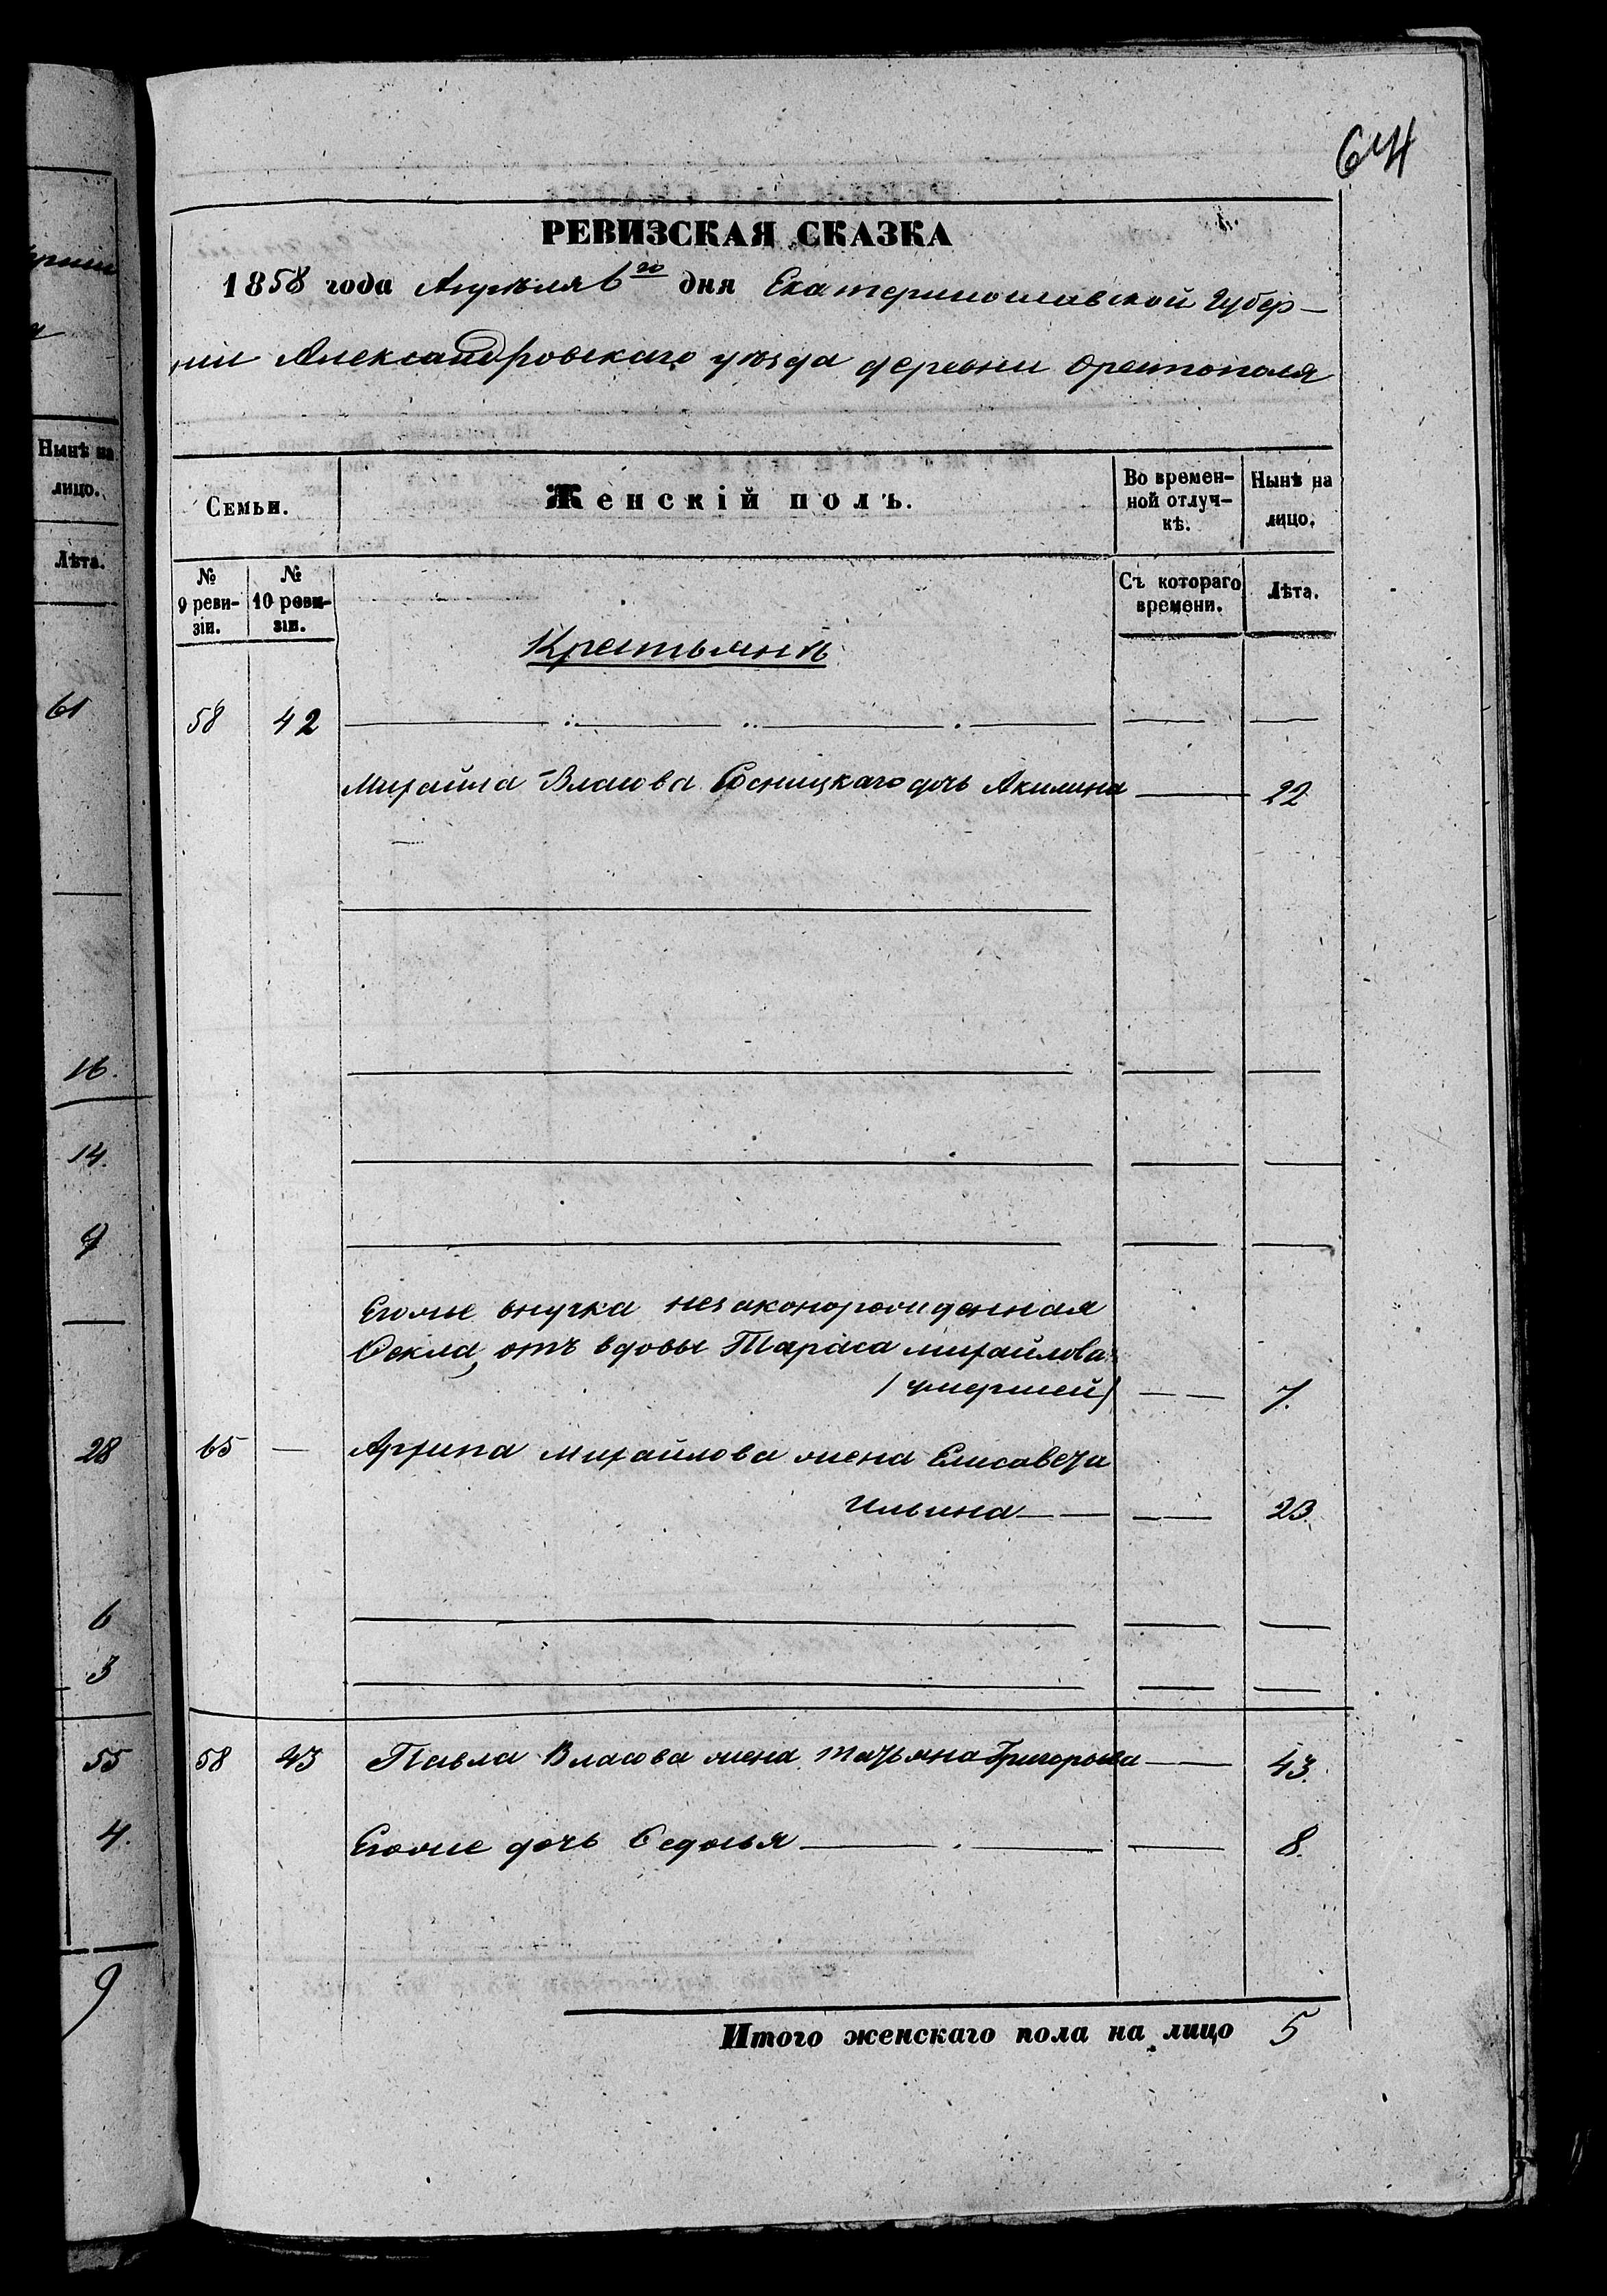 64
РЕВИЗСКАЯ СКАЗКА
1858 года Апрѣля 6го дня Екатеринославской Губер-
ніи Александровскаго уѣзда деревни Орестополя
Нынѣ на
лицо.
Лѣта.
61
16.
14.
9
28
6
3
55
4.
9
Семьи.
Женскій полъ.
Во времен-
ной отлуч-
кѣ.
Нынѣ на
лицо.
№
9 реви-
зіи.
№
10 реви-
зіи.
Съ котораго
времени.
Лѣта.
Крестьянъ
58 42
Михайла Власова Сосницкаго дочь Акилина 22
Егоже внучка незаконорожденная
Ѳекла, отъ вдовы Тараса Михайлова
(умершей) 7.
65 — Архипа Михайлова жена Елисавета
Ильина 23.
58 43 Павла Власова жена Татьяна Григорьева 43.
Егоже дочь Ѳедосья 8.
Итого женскаго пола на лицо 5